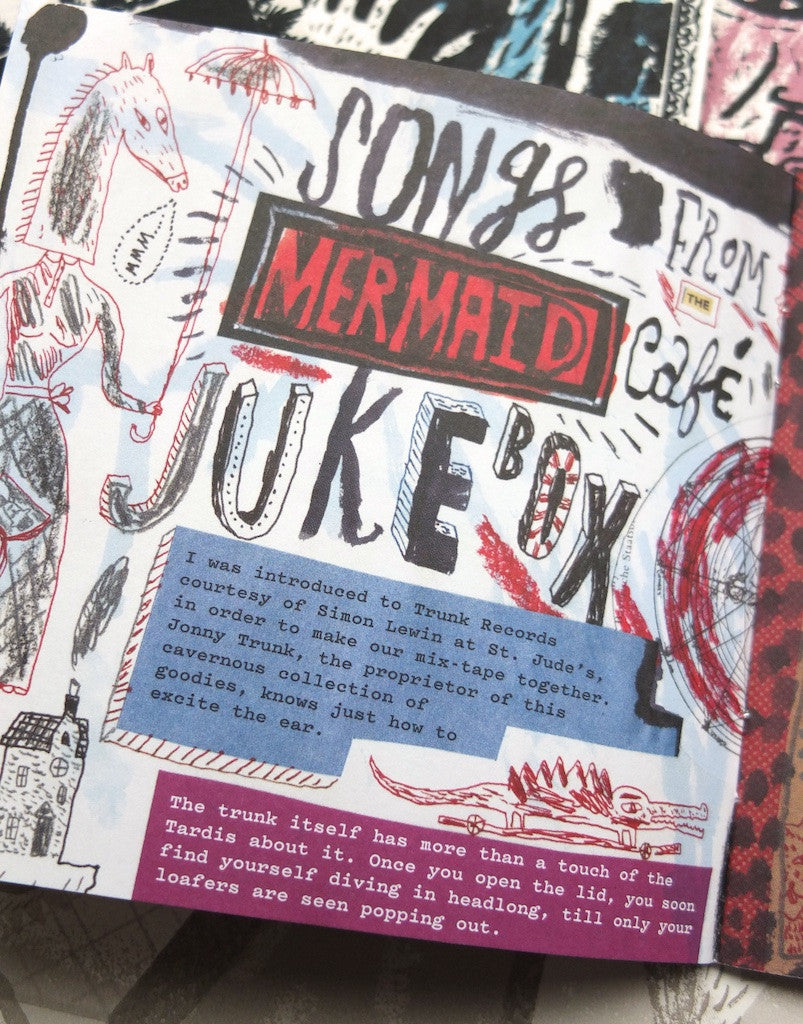 SONgs
FRoM
THE
MERMAID
café
JUKEBOX
www...
che Staats
I was introduced to Trunk Records
courtesy of Simon Lewin at St. Jude's,
in order to make our mix-tape together.
Jonny Trunk, the proprietor of this
cavernous collection of
goodies, knows just how to
excite the ear.
The trunk itself has more than a touch of the
Tardis about it. Once you open the lid, you soon
find yourself diving in headlong, till only your
loafers are seen popping out.